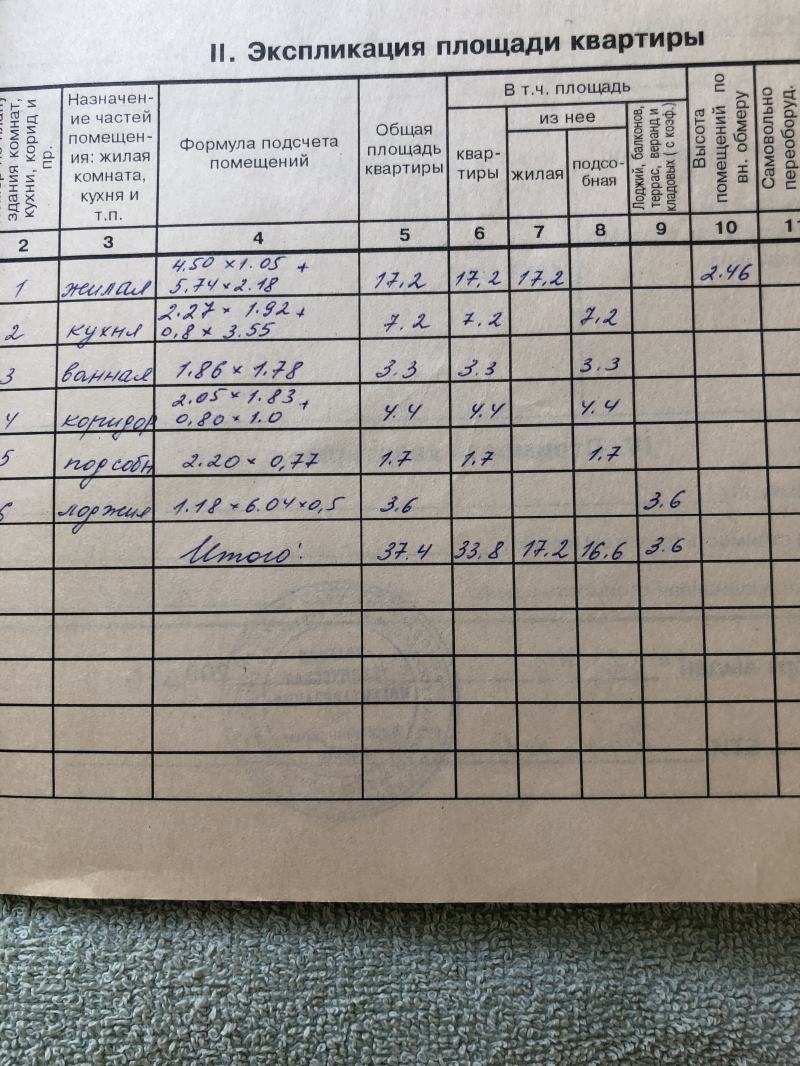 II. Экспликация площади квартиры
здания комнат,
кухни, корид и
пр.
Назначен-
ие частей
помещен-
ия: жилая
комната,
кухня и
т.п.
Формула подсчета
помещений
Общая
площадь
квартиры
В т.ч. площадь
из нее
квар-
тиры
жилая
подсо-
бная
Лоджий, балконов,
террас, веранд и
кладовых ( с коэф.)
Высота
помещений по
вн. обмеру
Самовольно
переоборуд.
2 3 4 5 6 7 8 9 10 11
1 жилая 4,50 × 1.05 + 17,2 17,2 17,2 2.46
5,74 × 2.18
2 кухня 2.27 × 1.92 + 7.2 7.2 7,2
0,8 × 3.55
3 ванная 1.86 × 1.78 3.3 3.3 3.3
4 коридор 2.05 × 1.83 + 4.4 4.4 4.4
0,80 × 1.0
5 подсобн 2.20 × 0,77 1.7 1.7 1.7
6 лоджия 1.18 × 6.04 × 0,5 3.6 3.6
Итого: 37.4 33,8 17,2 16.6 3.6